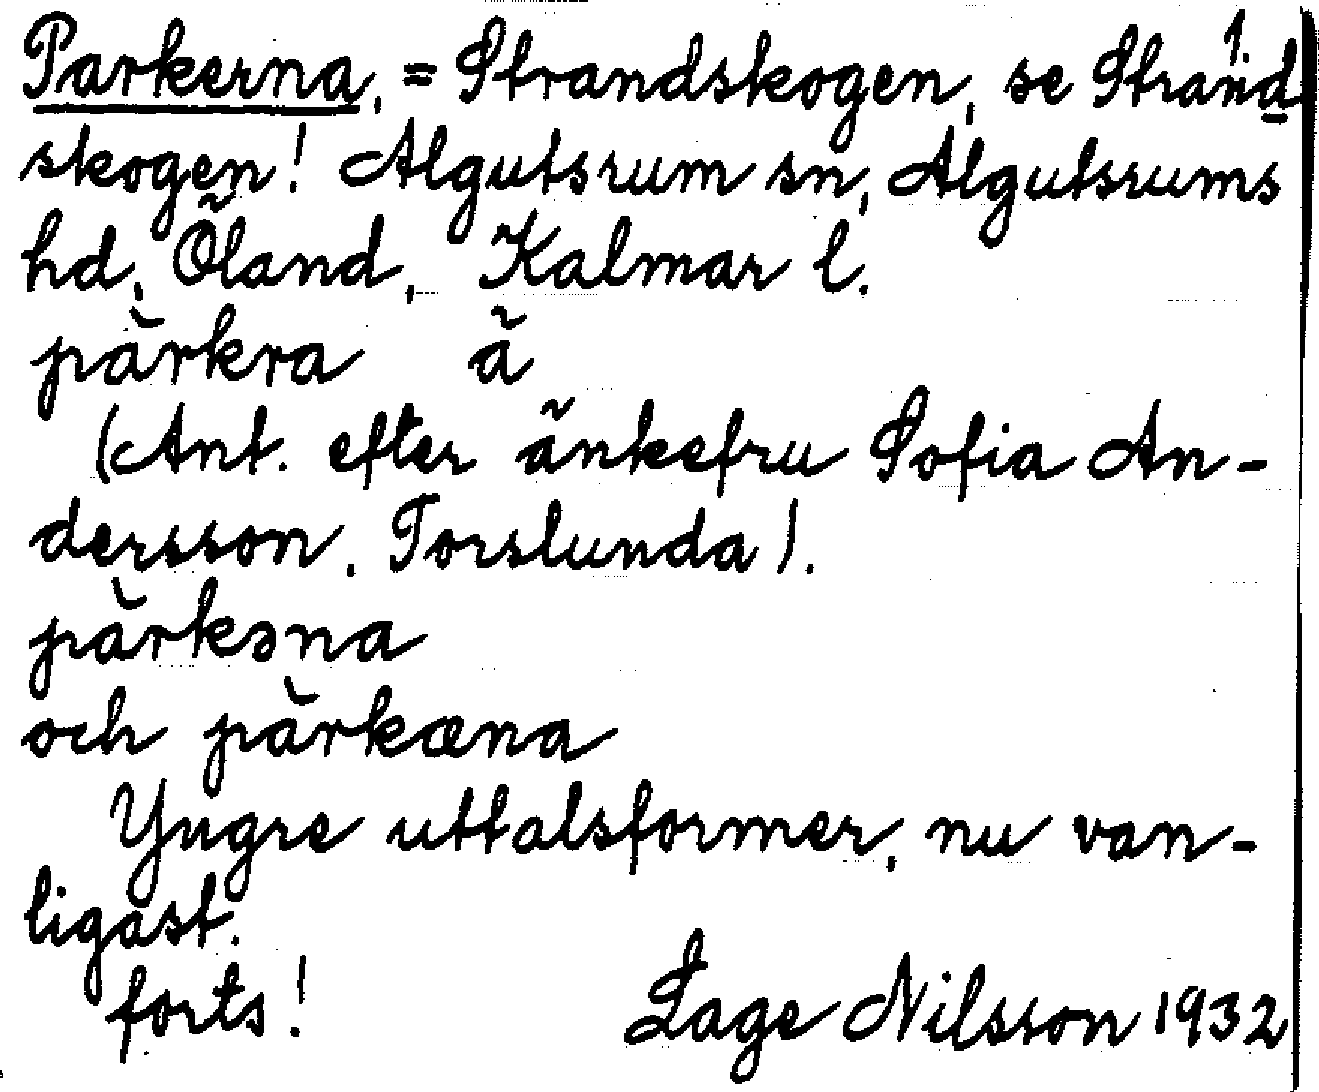 Parkerna, = Strandskogen, se Strand
1.
skogen! Algutsrum sn, Algutsrums
hd, Öland, Kalmar l.
pàrkra ä
(Ant. efter änkefru Sofia An-
dersson, Torslunda).
pàrkəna
och pàrkæna
Yngre uttalsformer, nu van-
ligast.
forts!
Lage Nilsson 1932